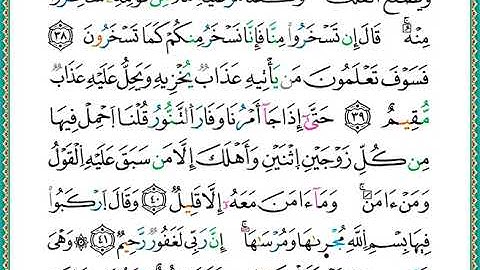 مِنْهُ ۚ قَالَ إِن تَسْخَرُوا۟ مِنَّا فَإِنَّا نَسْخَرُ مِنكُمْ كَمَا تَسْخَرُونَ ٣٨
فَسَوْفَ تَعْلَمُونَ مَن يَأْتِيهِ عَذَابٌ يُخْزِيهِ وَيَحِلُّ عَلَيْهِ عَذَابٌ
مُّقِيمٌ ٣٩ حَتَّىٰٓ إِذَا جَآءَ أَمْرُنَا وَفَارَ ٱلتَّنُّورُ قُلْنَا ٱحْمِلْ فِيهَا
مِن كُلٍّ زَوْجَيْنِ ٱثْنَيْنِ وَأَهْلَكَ إِلَّا مَن سَبَقَ عَلَيْهِ ٱلْقَوْلُ
وَمَنْ ءَامَنَ ۚ وَمَآ ءَامَنَ مَعَهُۥٓ إِلَّا قَلِيلٌ ٤٠ وَقَالَ ٱرْكَبُوا۟
فِيهَا بِسْمِ ٱللَّهِ مَجْر۪ىٰهَا وَمُرْسَىٰهَآ ۚ إِنَّ رَبِّى لَغَفُورٌ رَّحِيمٌ ٤١ وَهِىَ